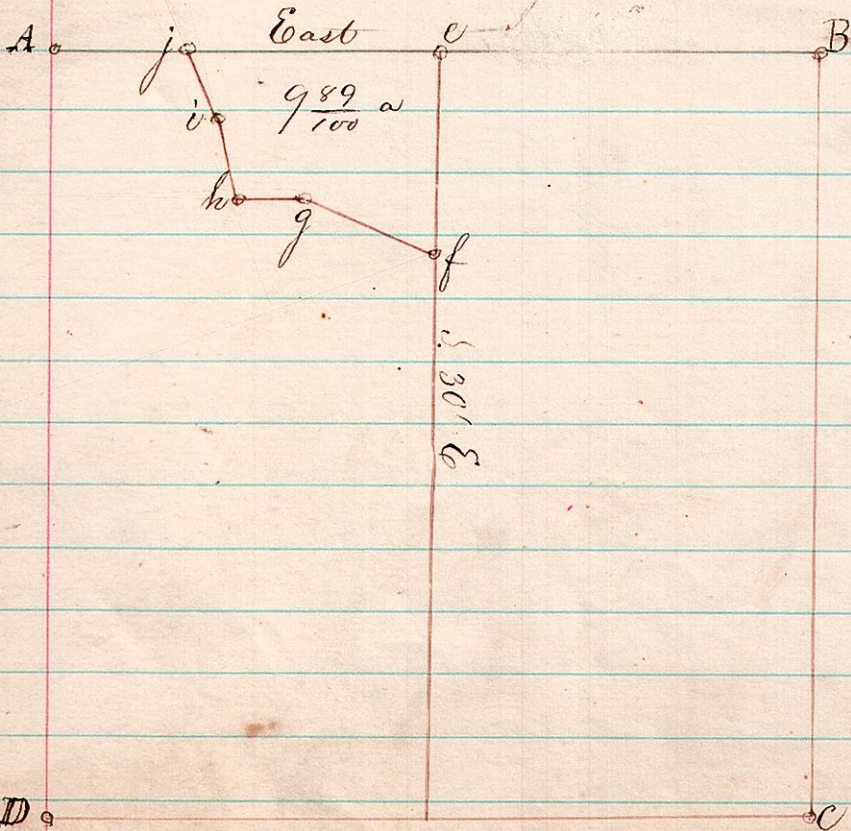 A j East e B
i 9 89/100 a
h g
f
S. 30' E
D C